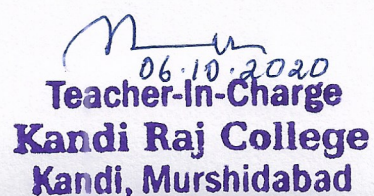 06.10.2020
Teacher-In-Charge
Kandi Raj College
Kandi, Murshidabad